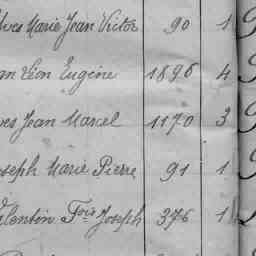 Yves Marie Jean Victor 90 1
an Léon Eugène 1896 4
ves Jean Marcel 1170 3
seph Marie Pierre 91 1
alentin Fois Joseph 376 1